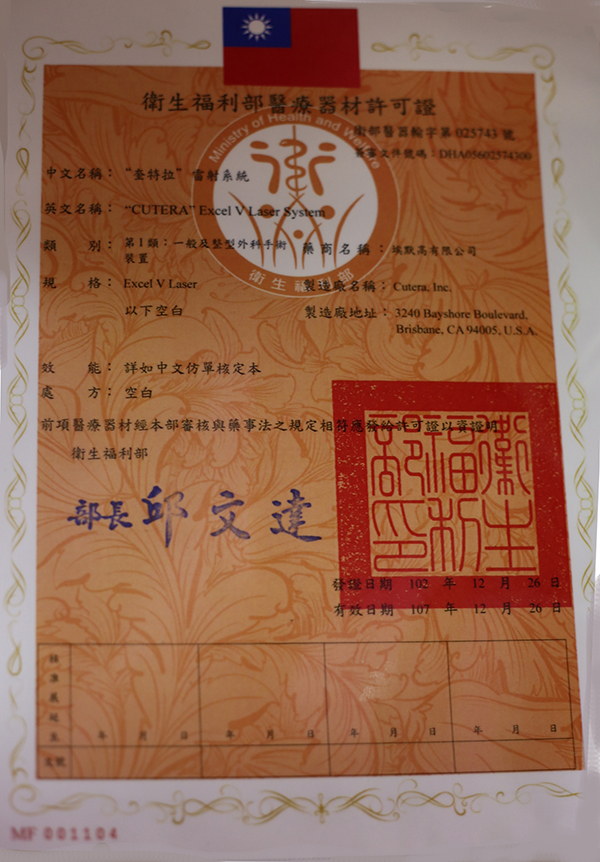 衛生福利部醫療器材許可證
衛部醫器輸字第 025743 號
簽審文件號碼：DHA05602574300
Ministry of Health and Welfare
衛生福利部
中文名稱：“奎特拉”雷射系統
英文名稱：“CUTERA” Excel V Laser System
類別：第I類：一般及整型外科手術
裝置
藥商名稱：埃默高有限公司
規格：Excel V Laser
以下空白
製造廠名稱：Cutera, Inc.
製造廠地址：3240 Bayshore Boulevard,
Brisbane, CA 94005, U.S.A.
效能：詳如中文仿單核定本
處方：空白
前項醫療器材經本部審核與藥事法之規定相符應發給許可證以資證明
衛生福利部
部長 邱文達
衛生福利部印
發證日期 102 年 12 月 26 日
有效日期 107 年 12 月 26 日
核准展延至
年 月 日 年 月 日 年 月 日 年 月 日
文號
MF 001104